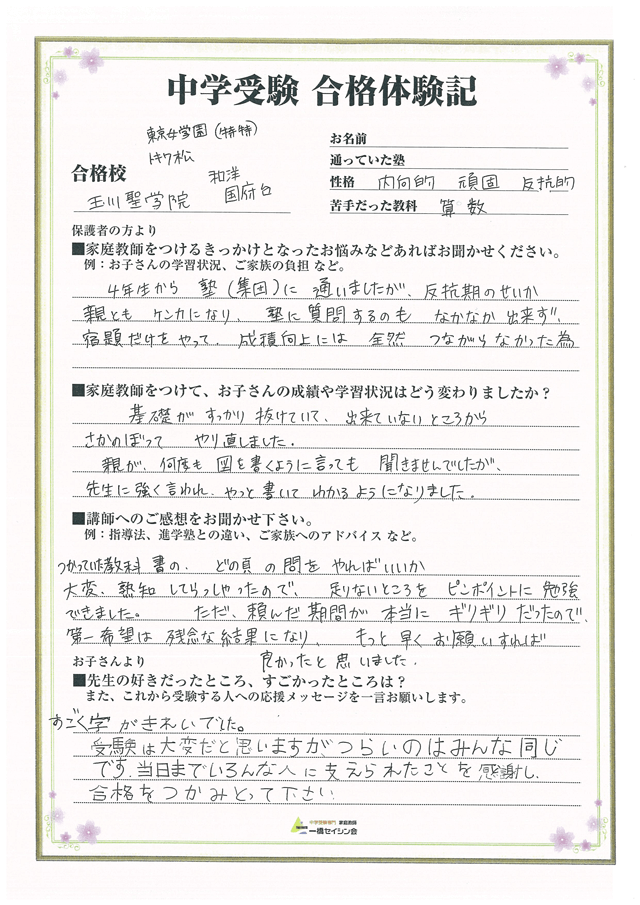 中学受験 合格体験記
東京女学園(特特)
トキワ松
合格校
和洋
国府台
玉川聖学院
お名前
通っていた塾
性格 内向的 頑固 反抗的
苦手だった教科 算数
保護者の方より
■家庭教師をつけるきっかけとなったお悩みなどあればお聞かせください。
例：お子さんの学習状況、ご家族の負担 など。
4年生から 塾(集団)に 通いましたが、反抗期のせいか
親とも ケンカになり、塾に質問するのも なかなか 出来ず、
宿題だけをやって、成績向上には 全然 つながらなかった為
■家庭教師をつけて、お子さんの成績や学習状況はどう変わりましたか？
基礎が すっかり 抜けていて、出来ていないところから
さかのぼって やり直しました。
親が、何度も 図を書くように言っても 聞きませんでしたが、
先生に強く言われ、やっと書いて わかるようになりました。
■講師へのご感想をお聞かせ下さい。
例：指導法、進学塾との違い、ご家族へのアドバイス など。
つかっていた教科書の、どの頁の問をやればいいか
大変、熟知してらっしゃったので、足りないところを ピンポイントに 勉強
できました。 ただ、頼んだ期間が 本当に ギリギリだったので、
第一希望は 残念な結果になり、 もっと早くお願いすれば
良かったと思いました。
お子さんより
■先生の好きだったところ、すごかったところは？
また、これから受験する人への応援メッセージを一言お願いします。
すごく字がきれいでした。
受験は大変だと思いますがつらいのはみんな同じ
です。当日までいろんな人に支えられたことを感謝し、
合格をつかみとって下さい
中学受験専門 家庭教師
一橋セイシン会